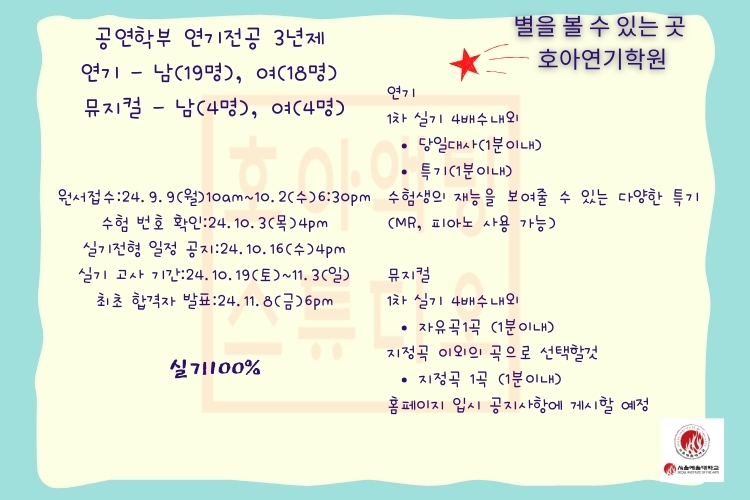 공연학부 연기전공 3년제
연기 - 남(19명), 여(18명)
뮤지컬 - 남(4명), 여(4명)
원서접수:24.9.9(월)10am~10.2(수)6:30pm
수험 번호 확인:24.10.3(목)4pm
실기전형 일정 공지:24.10.16(수)4pm
실기 고사 기간:24.10.19(토)~11.3(일)
최초 합격자 발표:24.11.8(금)6pm
실기100%
별을 볼 수 있는 곳
호아연기학원
연기
1차 실기 4배수내외
• 당일대사(1분이내)
• 특기(1분이내)
수험생의 재능을 보여줄 수 있는 다양한 특기
(MR, 피아노 사용 가능)
뮤지컬
1차 실기 4배수내외
• 자유곡1곡 (1분이내)
지정곡 이외의 곡으로 선택할것
• 지정곡 1곡 (1분이내)
홈페이지 입시 공지사항에 게시할 예정
호아액팅
스튜디오
서울예술대학교
SEOUL INSTITUTE OF THE ARTS